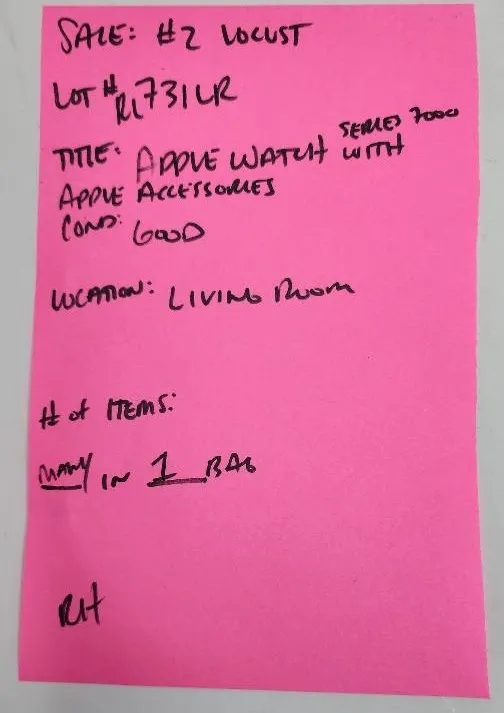 SALE: #2 LOCUST
LOT # RL731LR
TITLE: APPLE WATCH SERIES 7000 WITH
APPLE ACCESSORIES
COND: GOOD
LOCATION: LIVING ROOM
# of ITEMS:
MANY IN 1 BAG
RH